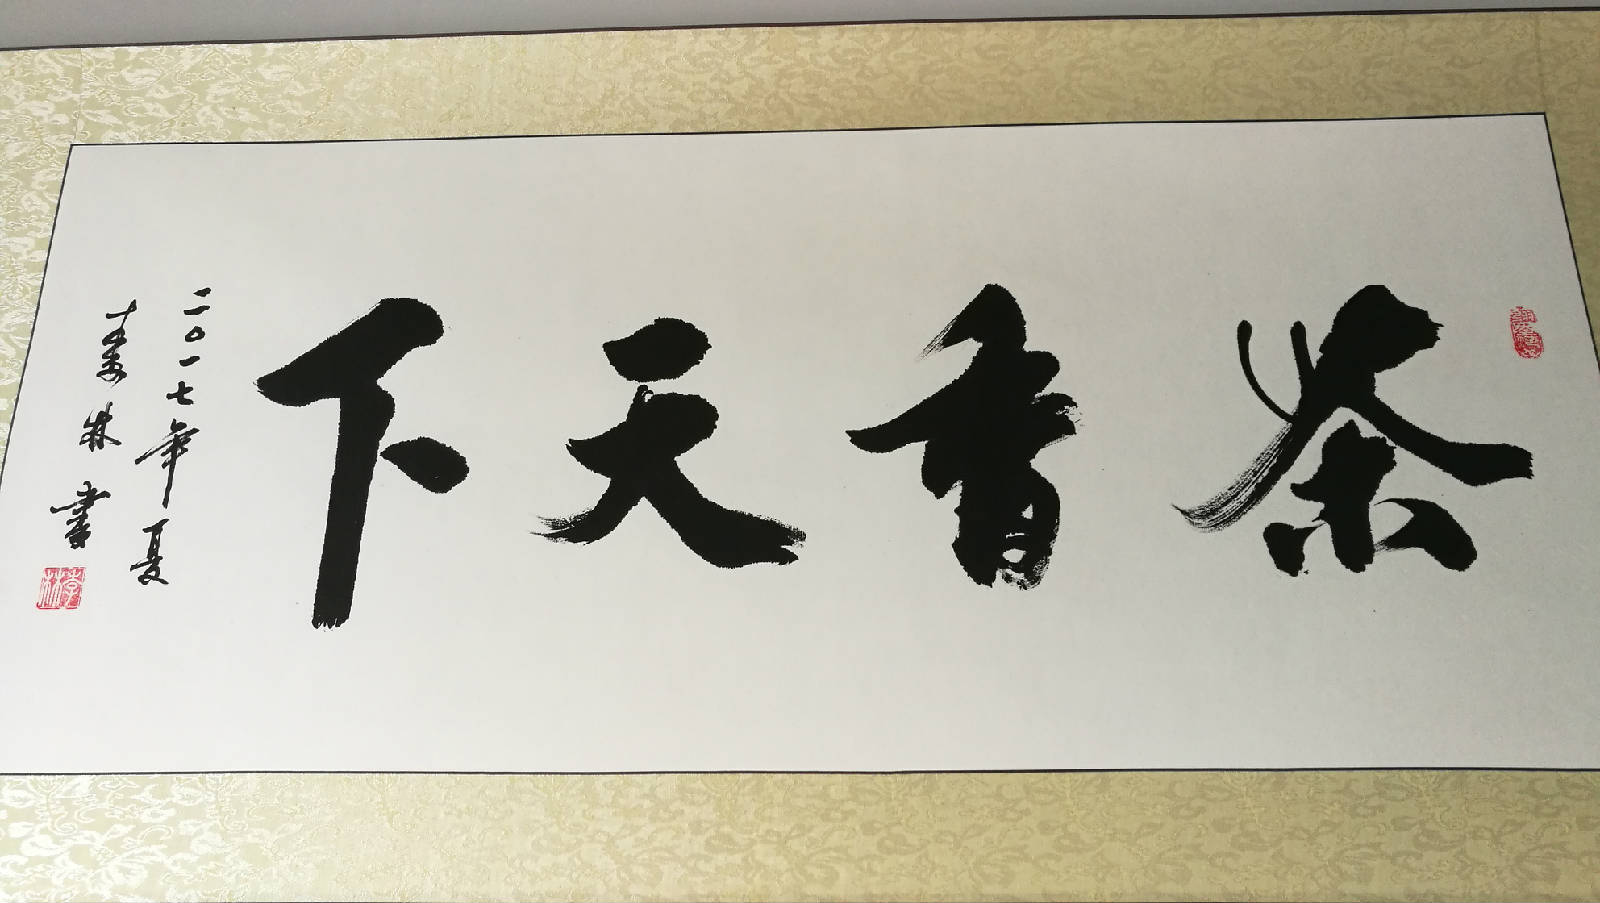 茶香天下
二〇一七年夏
林書